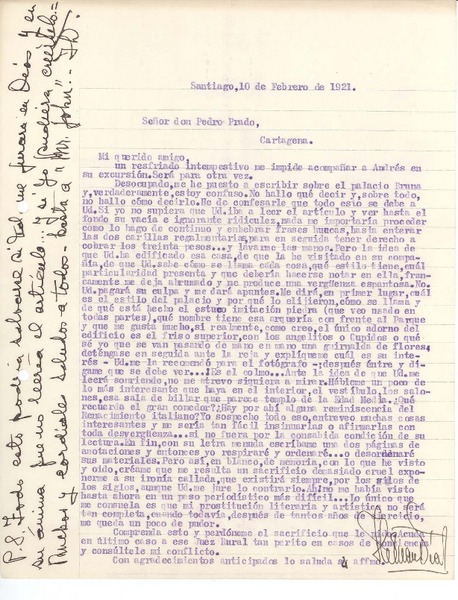 Santiago, 10 de Febrero de 1921.
Señor don Pedro Prado,
Cartagena.
Mi querido amigo,
un resfriado intempestivo me impide acompañar a Andrés en
su excursión. Será para otra vez.
Desocupado, me he puesto a escribir sobre el palacio Bruna
y, verdaderamente, estoy confuso. No hallo qué decir y, sobre todo,
no hallo cómo decirlo. He de confesarle que todo esto se debe a
Ud. Si yo no supiera que Ud. iba a leer el artículo y ver hasta el
fondo su vacía e ignorante ridiculez, nada me importaría proceder
como lo hago de contínuo y enhebrar frases huecas, hasta enterar
las dos carillas reglamentarias, para en seguida tener derecho a
cobrar los treinta pesos...y lavarme las manos. Pero la idea de
que Ud. ha edificado esa casa, de que la he visitado en su compa-
ñía, de que Ud. sabe cómo se llama cada cosa, qué estilo tiene, cuál
particularidad presenta y que debería hacerse notar en ella, fran-
camente, me deja abrumado y me produce una vergüenza espantosa. No.
Ud. pagará su culpa y me dará apuntes. Me dirá, en primer lugar, cuál
es el estilo del palacio y por qué lo elijieron, cómo se llama y
de qué está hecho el estuco imitación piedra (que veo usado en
todas partes), qué nombre tiene esa arquería con frente al Parque
y que me gusta mucho, si realmente, como creo, el único adorno del
edificio es el friso superior, con los angelitos o Cupidos o qué
sé yo que se van pasando de mano en mano una guirnalda de flores;
deténgase en seguida ante la reja y explíqueme cuál es su inte-
rés - Ud. me la recomendó para el fotógrafo - después entre y dígame
que se debe ver...Es el colmo... Ante la idea de que Ud. me
leerá sonriendo, no me atrevo siquiera a mirar. Hábleme un poco de
lo más interesante que haya en el interior, el vestíbulo, los salo-
nes, esa sala de billar que parece templo de la Edad Media. ¿Qué
recuerda el gran comedor? ¿Hay por ahí alguna reminiscencia del
Renacimiento italiano? Yo sospecho todo eso, entreveo muchas cosas
interesantes y me sería tan fácil insinuarlas o afirmarlas con
toda desvergüenza...si no fuera por la consabida condición de su
lectura. En fin, con su letra menuda escríbame una dos páginas de
anotaciones y entonces yo respiraré y ordenaré... desordenaré
sus materiales. Pero así, en blanco, de memoria, con lo que he visto
y oído, créame que me resulta un sacrificio demasiado cruel expo-
nerme a su ironía callada, que existirá siempre, por los siglos de
los siglos, aunque Ud. me jure lo contrario. Ah! no me había visto
hasta ahora en un paso periodístico más difícil... lo único que
me consuela es que mi prostitución literaria y artística no será
tan completa, cuando todavía, después de tantos años de ejercicio,
me queda un poco de pudor.
Comprenda esto y perdóneme el sacrificio que le pido. Acuda
en último caso a ese Juez Rural tan perito en casos de conciencia
y consúltele mi conflicto.
Con agradecimientos anticipados lo saluda su affmo.
P.S. Todo esto podría salvarse si Ud. me jurara en Dios y en
su ánima que no leerá el artículo y si yo pudiera creérselo=
Muchos y cordiales saludos a todos - hasta a "Mr. John".-